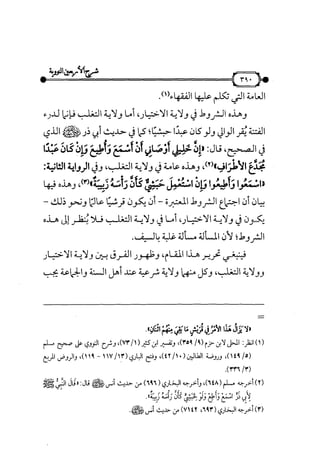 شرح الأربعين النووية
٣٩٠
العامة التي تكلم عليها الفقهاء(١).
وهذه الشروط في ولاية الاختيار، أما ولاية التغلب فإنما لدرء
الفتنة يُقر الوالي ولو كان عبدًا حبشيًّا؛ كما في حديث أبي ذر ﷺ الذي
في الصحيح، قال: «إِنَّ خَلِيلِي أَوْصَانِي أَنْ أَسْمَعَ وَأُطِيعَ وَإِنْ كَانَ عَبْدًا
مُجَدَّعَ الأَطْرَافِ»(٢)، وهذه عامة في ولاية التغلب، وفي الرواية الثانية:
«اسْمَعُوا وَأَطِيعُوا وَإِنْ اسْتُعْمِلَ حَبَشِيٌّ كَأَنَّ رَأْسَهُ زَبِيبَةٌ»(٣)، وهذه فيها
بيان أن اجتماع الشروط المعتبرة - أن يكون قرشيًا عالمًا ونحو ذلك -
يكون في ولاية الاختيار، أما في ولاية التغلب فلا يُنظر إلى هذه
الشروط؛ لأن المسألة مسألة غلبة بالسيف.
فينبغي تحرير هذا المقام، وظهور الفرق بين ولاية الاختيار
وولاية التغلب، وكل منهما ولاية شرعية عند أهل السنة والجماعة يجب
=
«لا يَزَالُ هَذَا الأَمْرُ فِي قُرَيْشٍ مَا بَقِيَ مِنْهُمُ اثْنَانِ».
(١) انظر: المحلى لابن حزم (٩/ ٣٥٩)، وتفسير ابن كثير (١/ ٧٣)، وشرح النووي على صحيح مسلم
(٥/ ١٤٩)، وروضة الطالبين (١٠/ ٤٢)، وفتح الباري (١٣/ ١١٧ - ١١٩)، والروض المربع
(٣/ ٣٣٦).
(٢) أخرجه مسلم (٦٤٨)، وأخرجه البخاري (٦٩٦) من حديث أنس قال: «قَالَ النَّبِيُّ ﷺ
لأَبِي ذَرٍّ اسْمَعْ وَأَطِعْ وَلَوْ لِحَبَشِيٍّ كَأَنَّ رَأْسَهُ زَبِيبَةٌ».
(٣) أخرجه البخاري (٦٩٣، ٧١٤٢) من حديث أنس.